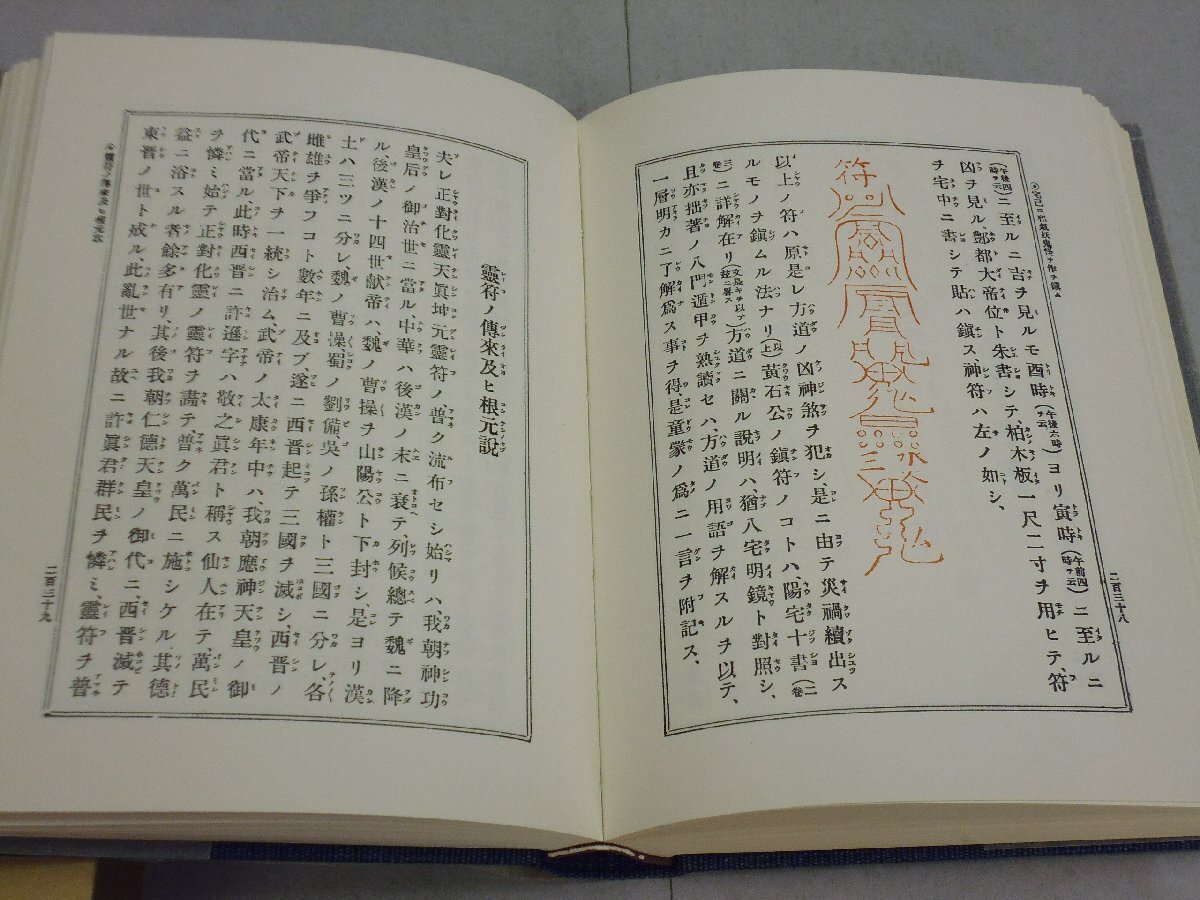 (午後四時ヲ云)ニ至ルニ吉ヲ見ルモ酉時(午後六時ヲ云)ヨリ寅時(午前四時ヲ云)ニ至ルニ
凶ヲ見ル、酆都大帝位ト朱書シテ、柏木板一尺二寸ヲ用ヒテ、符
ヲ宅中ニ書シテ貼ハ鎭ス、神符ハ左ノ如シ、
符
以上ノ符ハ原是レ方道ノ凶神煞ヲ犯シ、是ニ由テ災禍續出ス
ルモノヲ鎭ムル法ナリ(以上)黃石公ノ鎭符ノコトハ、陽宅十書(卷二
三卷)ニ詳解在リ方道ニ關ル說明ハ、猶八宅明鏡ト對照シ、
且亦拙著ノ八門遁甲ヲ熟讀セハ、方道ノ用語ヲ解スルヲ以テ、
一層明カニ了解爲ス事ヲ得、是童蒙ノ爲ニ一言ヲ附記ス、
二百三十八
靈符ノ傳來及ヒ根元說
夫レ正對化靈天眞坤元靈符ノ普ク流布セシ始リハ、我朝神功
皇后ノ御治世ニ當ル、中華ハ後漢ノ末ニ衰テ、列候總テ魏ニ降
ル、後漢ノ十四世献帝ハ、魏ノ曹操ヲ山陽公ト下封シ、是ヨリ漢
土ハ三ツニ分レ、魏ノ曹操蜀ノ劉備吳ノ孫權ト三國ニ分レ、各
雌雄ヲ爭フコト數年ニ及ブ、遂ニ西晋起テ三國ヲ滅シ、西晋ノ
武帝天下ヲ一統シ治ム、武帝ノ太康年中ハ、我朝應神天皇ノ御
代ニ當ル此時西晋ニ許遜字ハ敬之眞君ト稱ス仙人在テ、萬民
ヲ憐ミ始テ正對化靈ノ靈符ヲ講テ、普ク萬民ニ施シケル、其德
益ニ浴スル者餘多有リ、其後我朝仁德天皇ノ御代ニ、西晋滅テ
東晋ノ世ト成ル、此亂世ナル故ニ許眞君群民ヲ憐ミ、靈符ヲ普
二百三十九